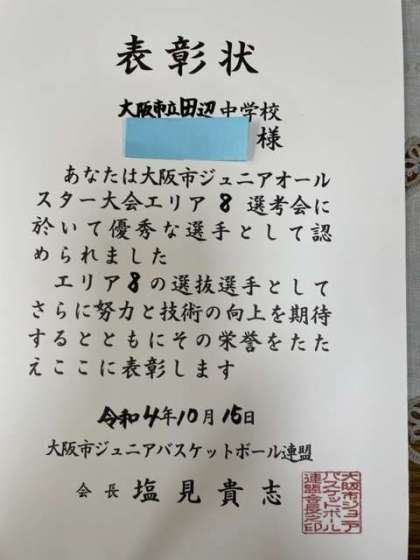 表彰状
大阪市立田辺中学校
様
あなたは大阪市ジュニアオール
スター大会エリア8選考会に
於いて優秀な選手として認
められました
エリア8の選抜選手として
さらに努力と技術の向上を期待
するとともにその栄誉をたた
えここに表彰します
令和4年10月15日
大阪市ジュニアバスケットボール連盟
会長 塩見貴志
大阪市ジュニア
バスケットボール
連盟会長之印